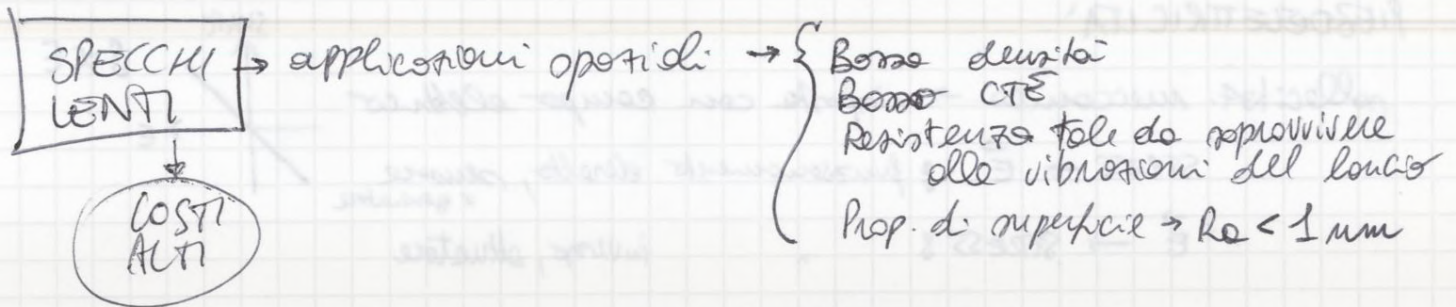 SPECCHI
LENTI
→ applicazioni spaziali → { Bassa densità
Basso CTE
Resistenza tale da sopravvivere
alle vibrazioni del lancio
Prop. di superficie → Ra < 1 nm
COSTI
ALTI